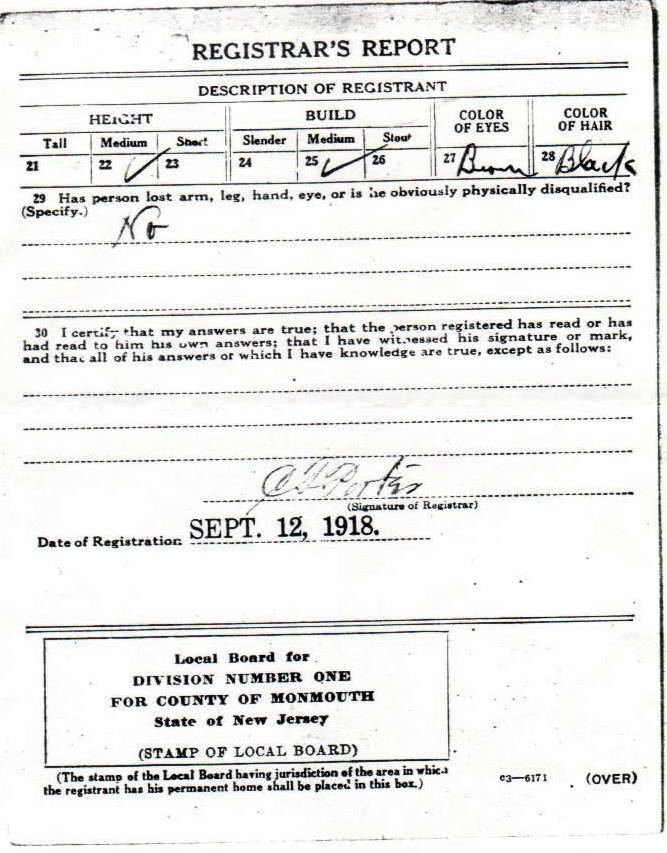 REGISTRAR'S REPORT
DESCRIPTION OF REGISTRANT
HEIGHT BUILD COLOR OF EYES COLOR OF HAIR
Tall Medium Short Slender Medium Stout
21 22 ✓ 23 24 25 ✓ 26 27 Brown 28 Black
29 Has person lost arm, leg, hand, eye, or is he obviously physically disqualified?
(Specify.)
No
30 I certify that my answers are true; that the person registered has read or has
had read to him his own answers; that I have witnessed his signature or mark,
and that all of his answers of which I have knowledge are true, except as follows:
(Signature of Registrar)
Date of Registration SEPT. 12, 1918.
Local Board for
DIVISION NUMBER ONE
FOR COUNTY OF MONMOUTH
State of New Jersey
(STAMP OF LOCAL BOARD)
(The stamp of the Local Board having jurisdiction of the area in which
the registrant has his permanent home shall be placed in this box.)
c3—6171 (OVER)